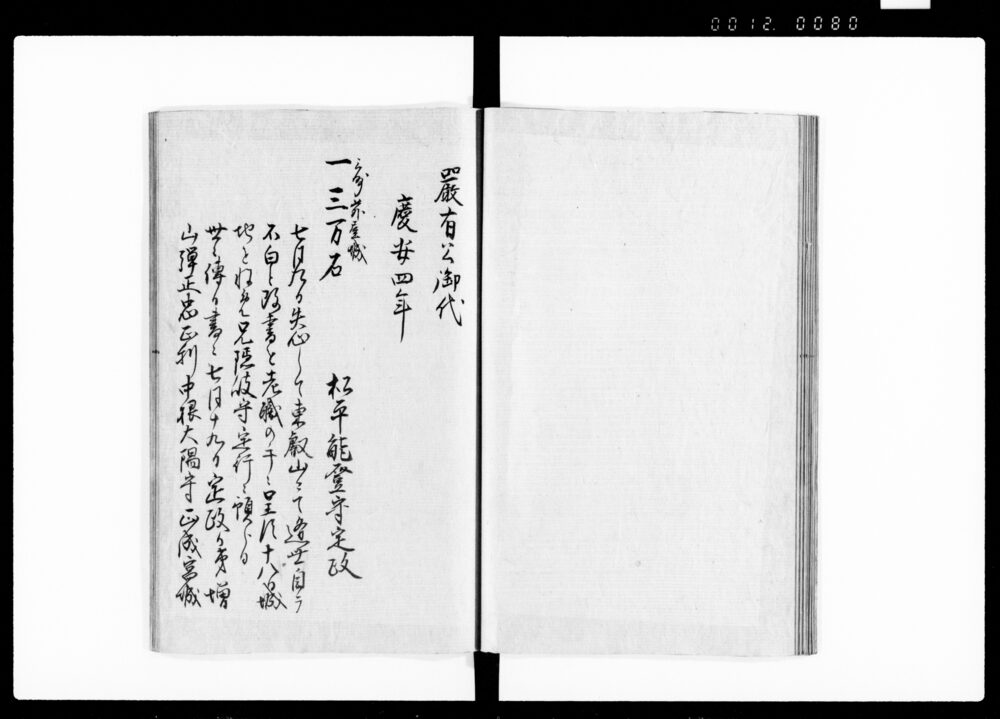 0012.0080
嚴有公御代
慶安四年
三州苅屋城
一三万石 松平能登守定政
七月九日失心して東叡山ニて遁世自ラ
不白と改書を老職の干ニ呈ス十八日城
地を収公兄隠岐守定行ニ預らる
世ニ傳ル書ニ七月十九日定政カ弟増
山弾正忠正利中根大隅守正成宮城